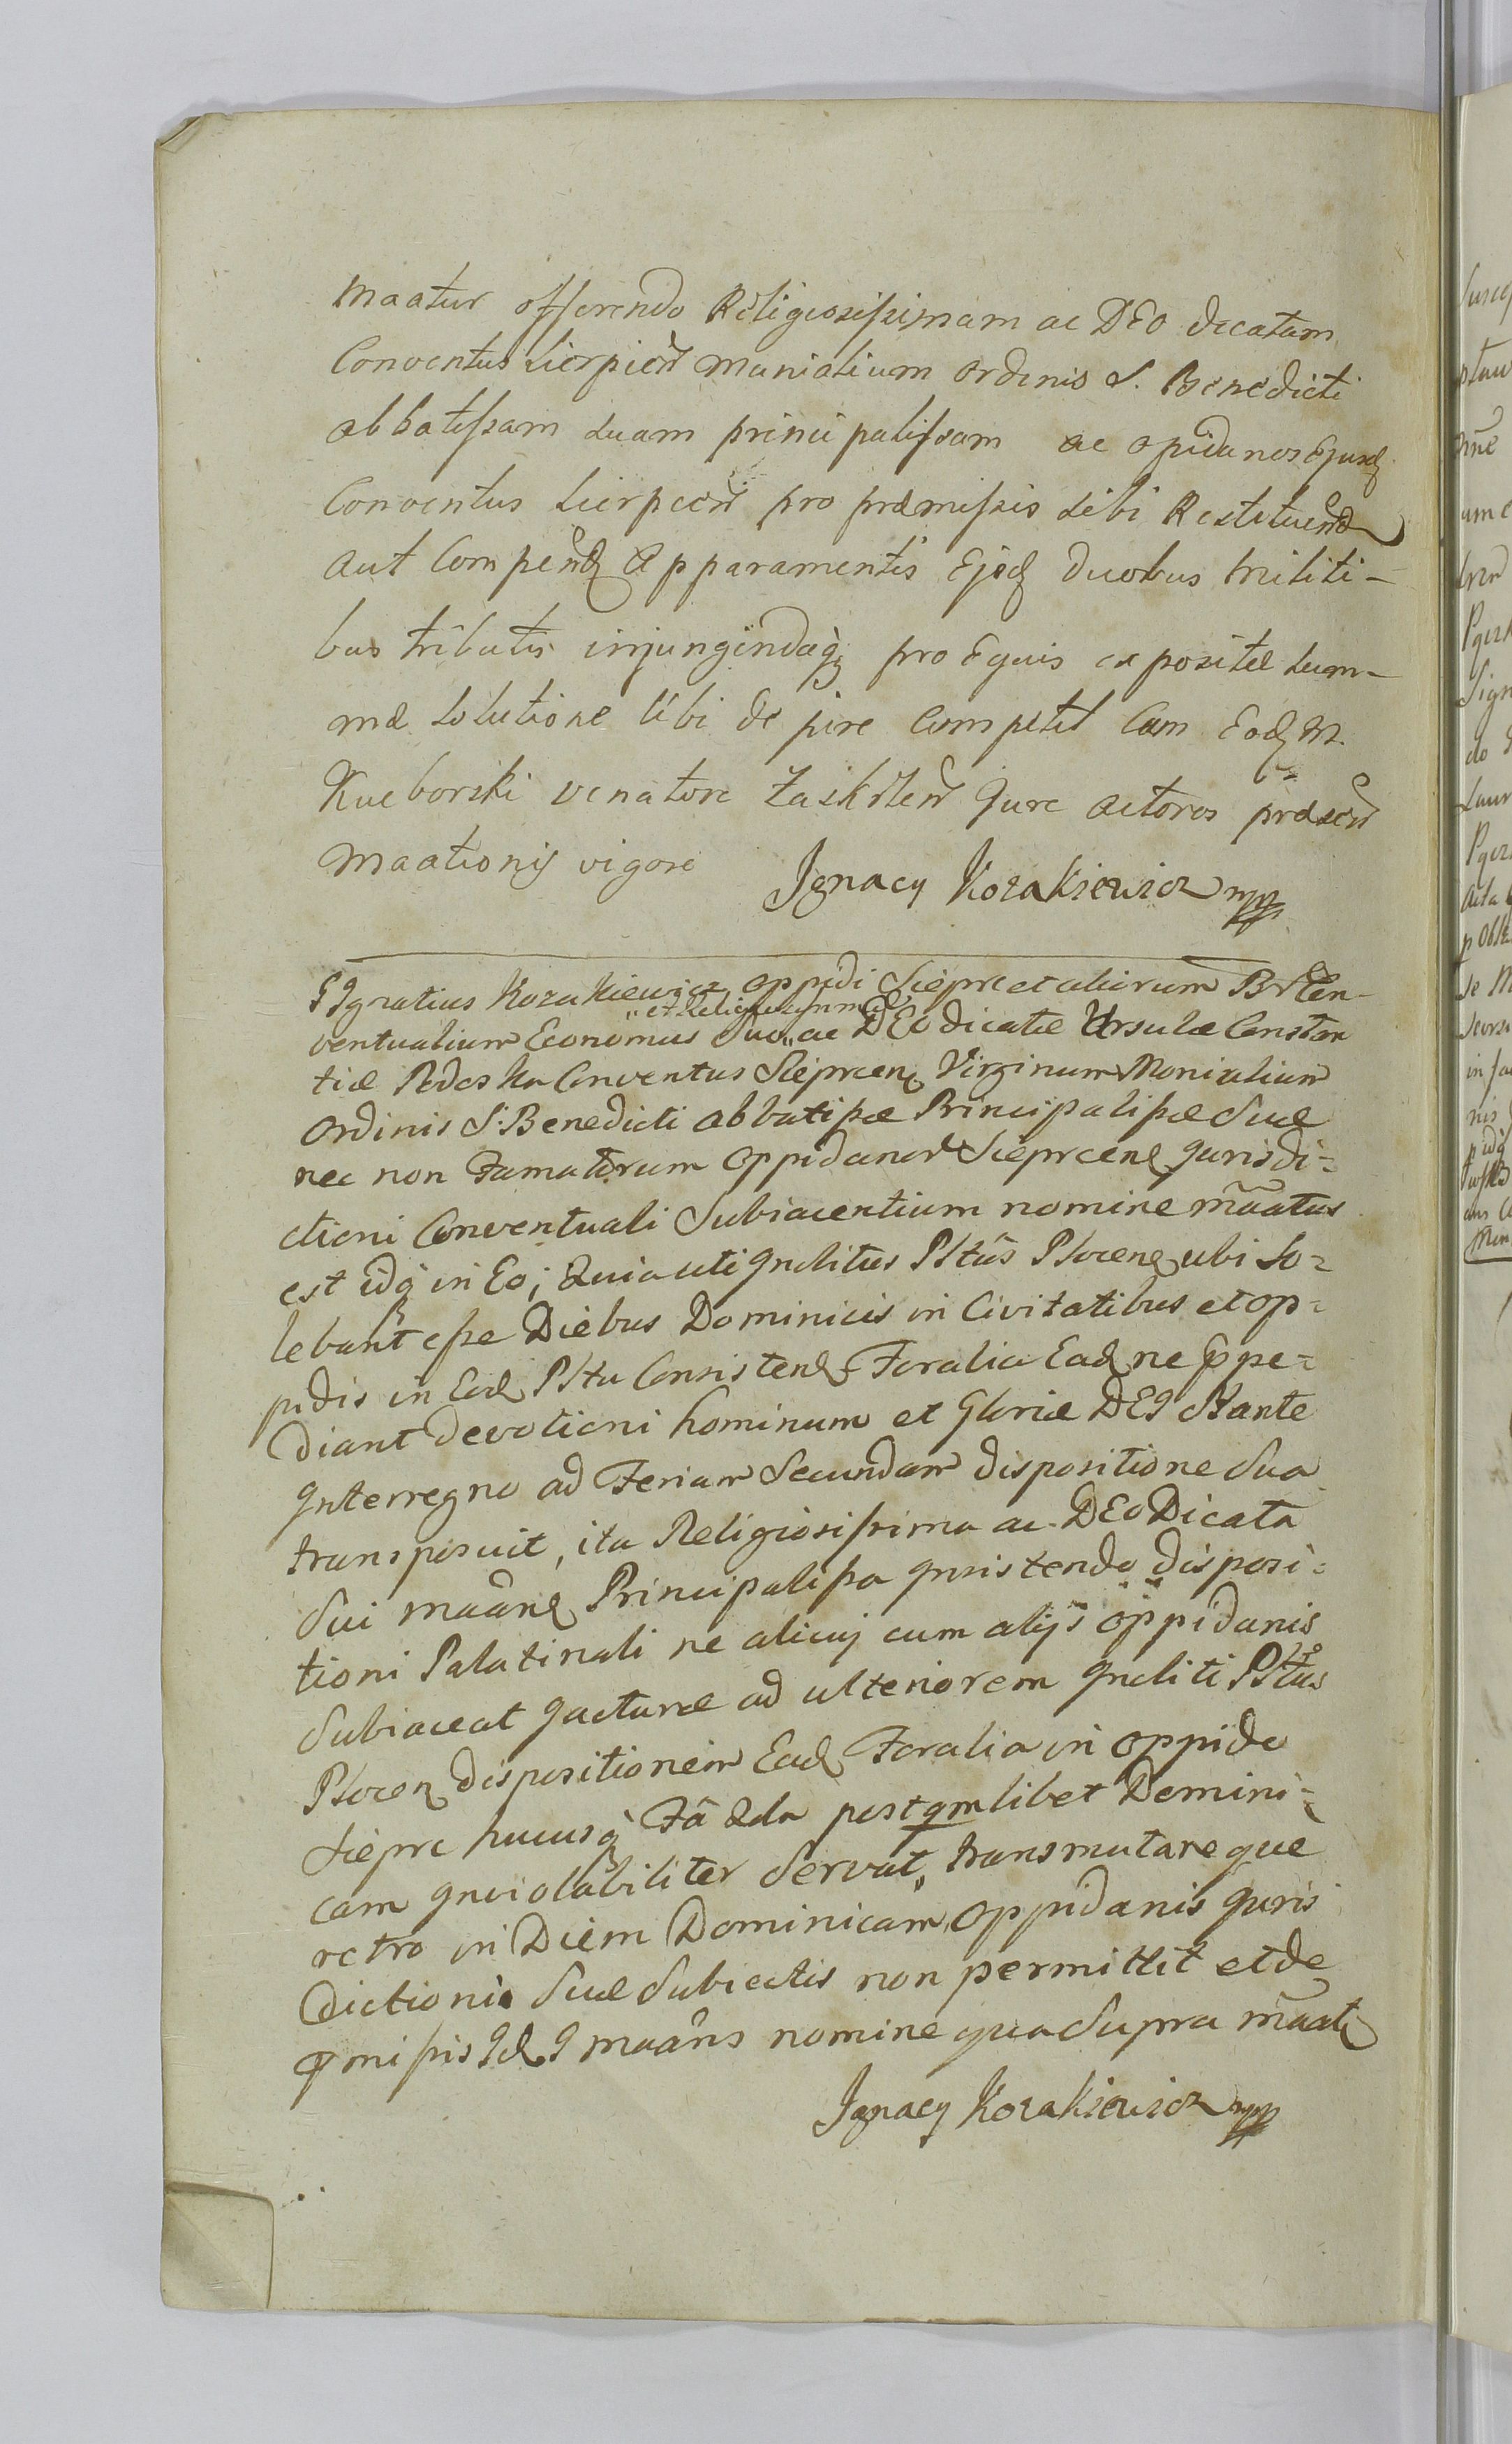 maatur offerendo Religiosissimam ac DEO dicatam
Conventus Sierpecen̄ Monialium ordinis S. Benedicti
abbatissam suam principalissam ac opidanos Ejusdȩ
Conventus Sierpecen̄ pro præmissis sibi Restituend
aut Compendȩ Apparamentis Ejsdȩ duobus militi-
bus tributis injungendaqȝ pro Equis expositæ sum-
mæ solutione sibi de jure competit Cum Eodȩ M.
Kueborski venatore Zaskrilen̄ Jure actoreo præsen̄
maationis vigore
Ignacy Kozakiewicz mpp
G Ignatius Kozakiewicz oppidi Sieprc et aliorum B͠r Con-
„et Religiosissimæ
ventualium Economus suo „ ac DEO dicatæ Ursulæ Constan
tiæ Podoska Conventus Sieprcenȩ Virginum Monialium
Ordinis S. Benedicti abbatissæ Principalissæ Suæ
nec non Famatorum oppidanor̄ Sieprcenȩ Jurisdi=
ctioni Conventuali Subiacentium nomine m̃aatus
est idq̀ in Eo; Quia uti Inclitus Pltũs Plocenȩ ubi So=
lebant esse Diebus Dominicis in Civitatibus et op=
pidis in Eodȩ Pltu Consistenȩ Foralia Eadȩ ne ppe=
diant devotioni hominum et Gloriæ DEI Stante
Interregno ad Feriam Secundam dispositione Sua
transposuit, ita Religiosissima ac DEO Dicata
Sui maãnȩ Principalissa insistendo disposi=
tioni Palatinali ne alicuj cum alijs oppidanis
Subiaceat Jacturæ ad ulteriorem Incliti Pltus
Plocenȩ dispositionem Eadȩ Foralia in oppido
Sieprc hucusq̀ Fã 2da post qmlibet Domini=
cam Inviolabiliter Servat, transmutareque
retro in Diem Dominicam oppidanis Juris
dictioni Suæ Subiectis non permittit et de
pmissis Idȩ G maãns nomine quo Supra m̃aat
Ignacy Kozakiewicz mpp